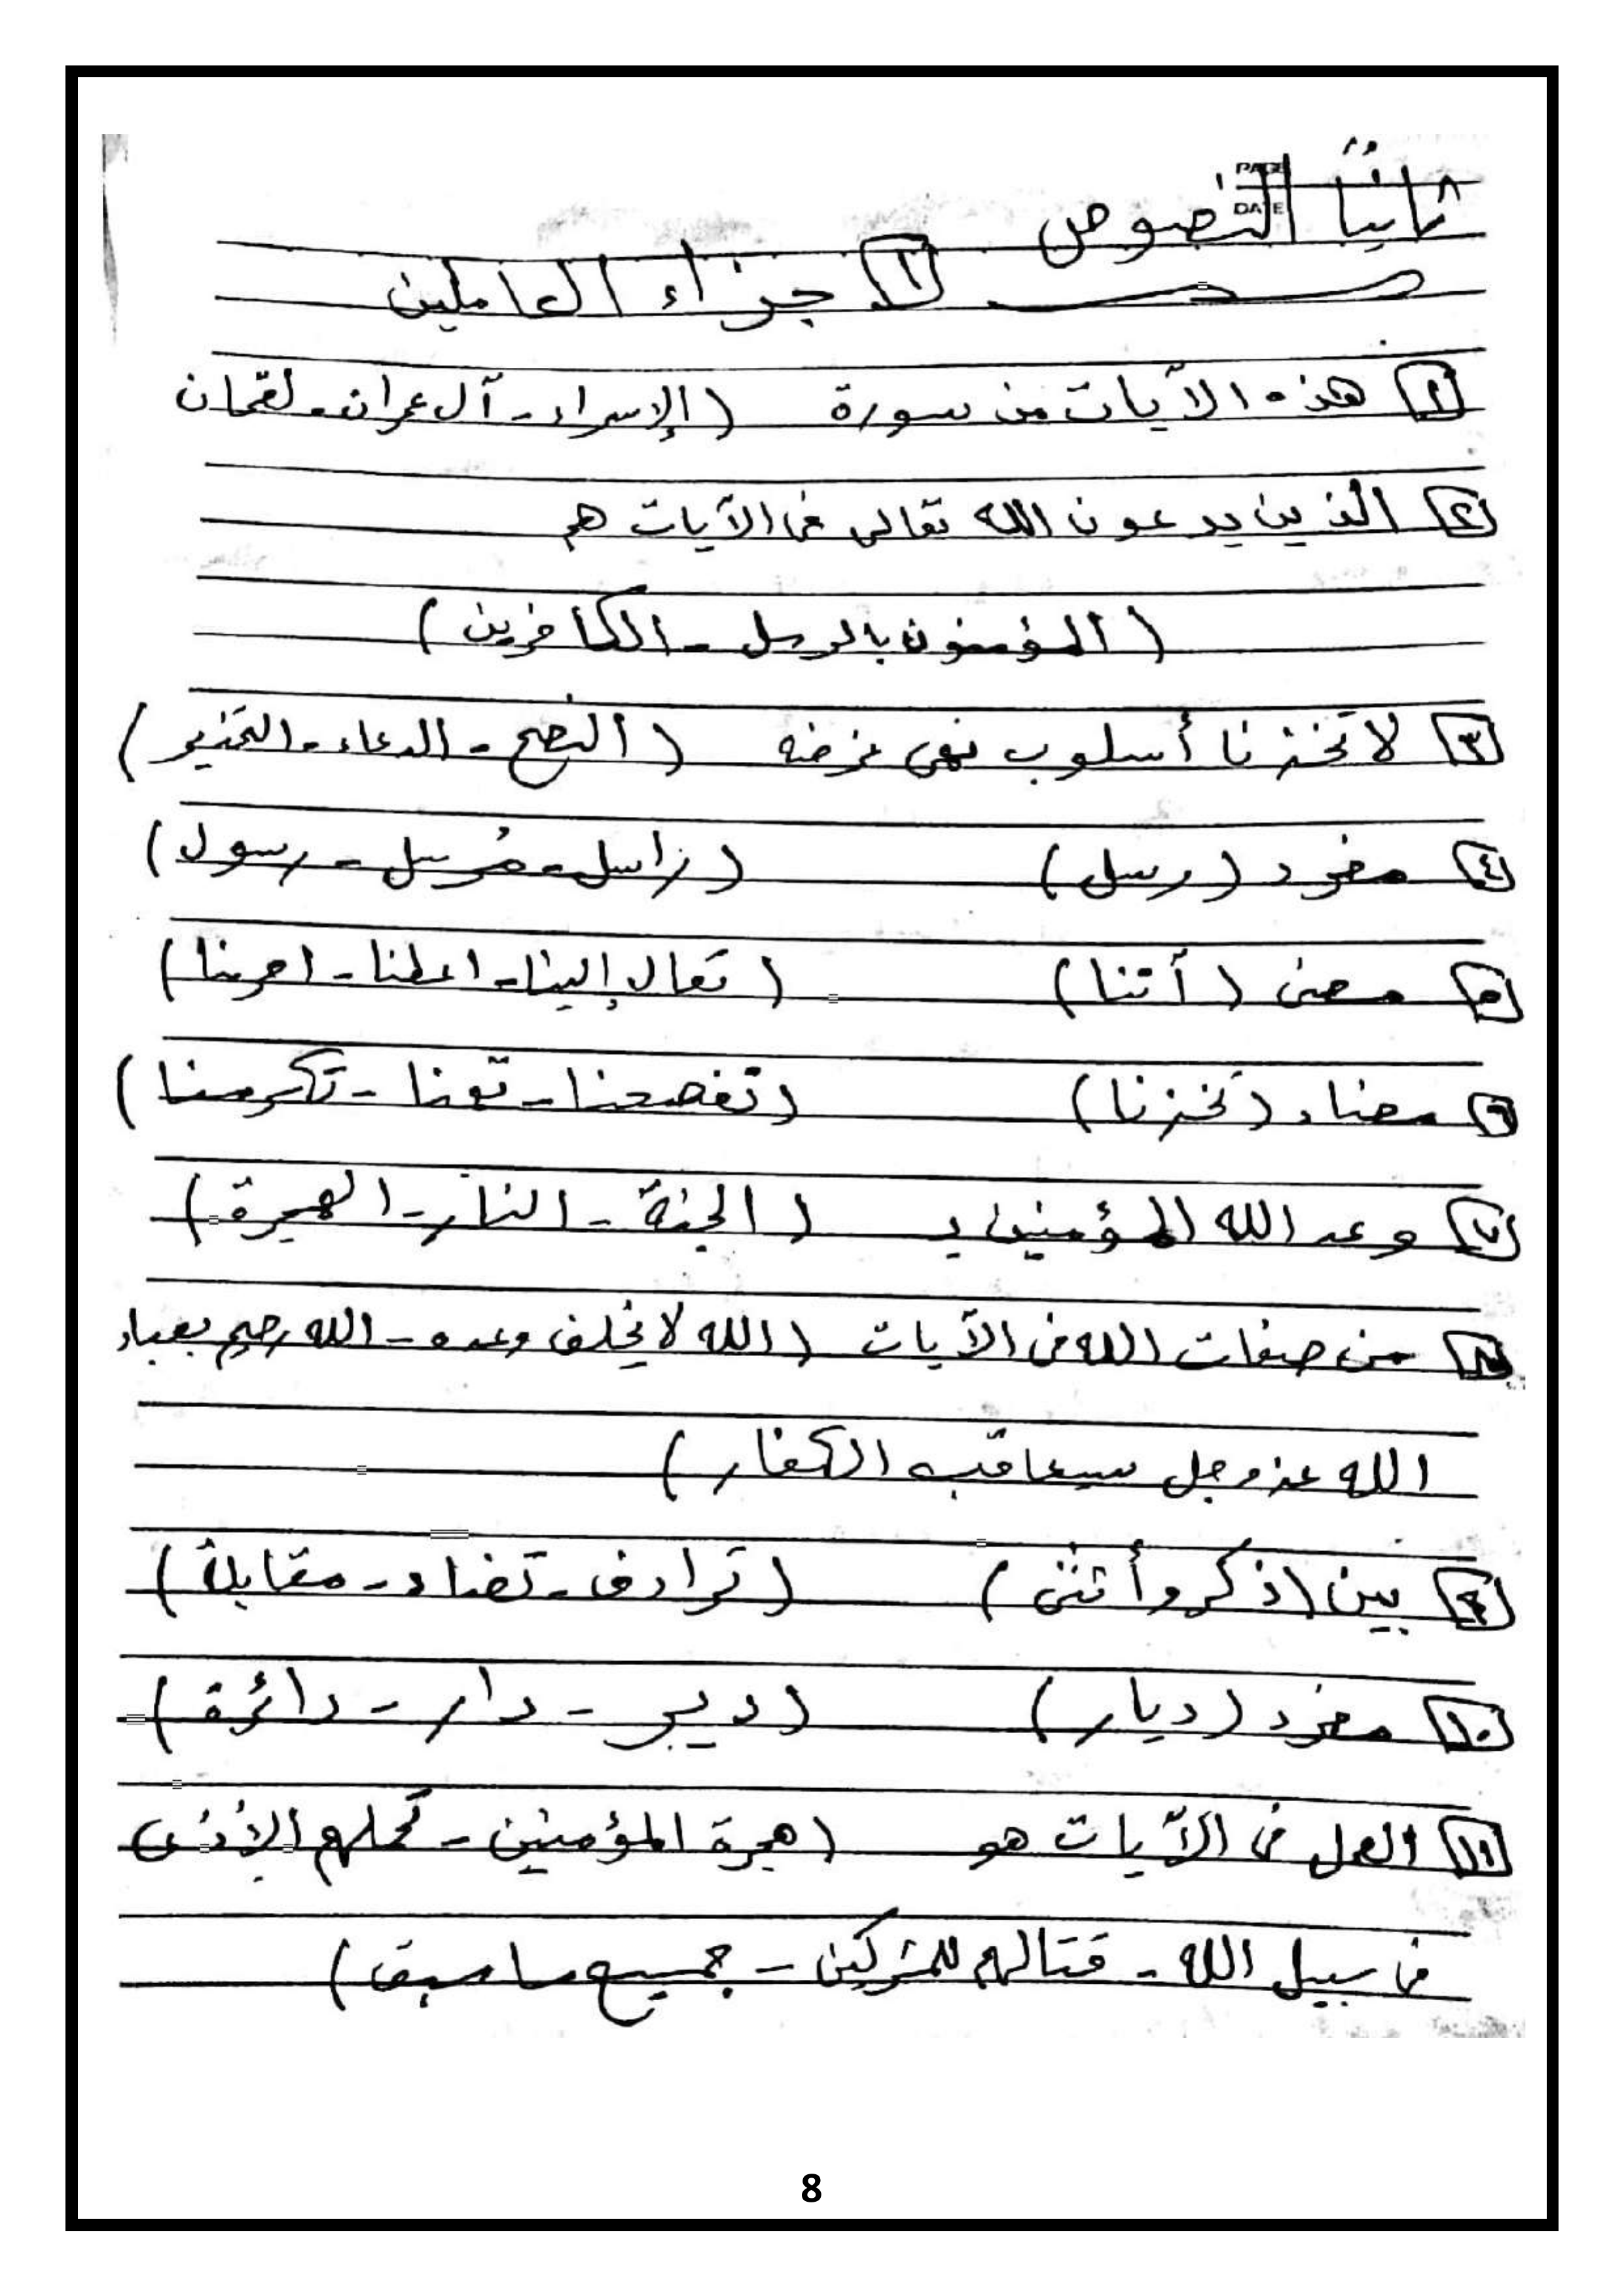 PAGE
DATE
ثانيًا النصوص
١ جزاء العاملين
١ هذه الآيات من سورة (الإسراء - آل عمران - لقمان
٢ الذين يدعون الله تعالى فى الآيات هم
(المؤمنون بالرسل - الكافرين)
٣ لا تخزنا أسلوب نهى غرضه (النصح - الدعاء - التحذير)
٤ مفرد (رسل) (راسل - مُرسل - رسول)
٥ معنى (أتنا) (تعال إلينا - اعطنا -
٦ معناه (تخزنا) (تفضحنا - تهنا - تكرمنا)
٧ وعد الله المؤمنين بـ (الجنة - النار - الهجرة)
٨ من صفات الله فى الآيات (الله لا يخلف وعده - الله رحيم بعباد
الله عز وجل سيعاقب الكفار)
٩ بين (ذكر وأنثى) (ترادف - تضاد - مقابلة)
١٠ مفرد (ديار) (دير - دار - دائرة)
١١ العمل فى الآيات هو (هجرة المؤمنين - تحملهم الأذى
فى سبيل الله - قتالهم للمشركين - جميع ما سبق)
8